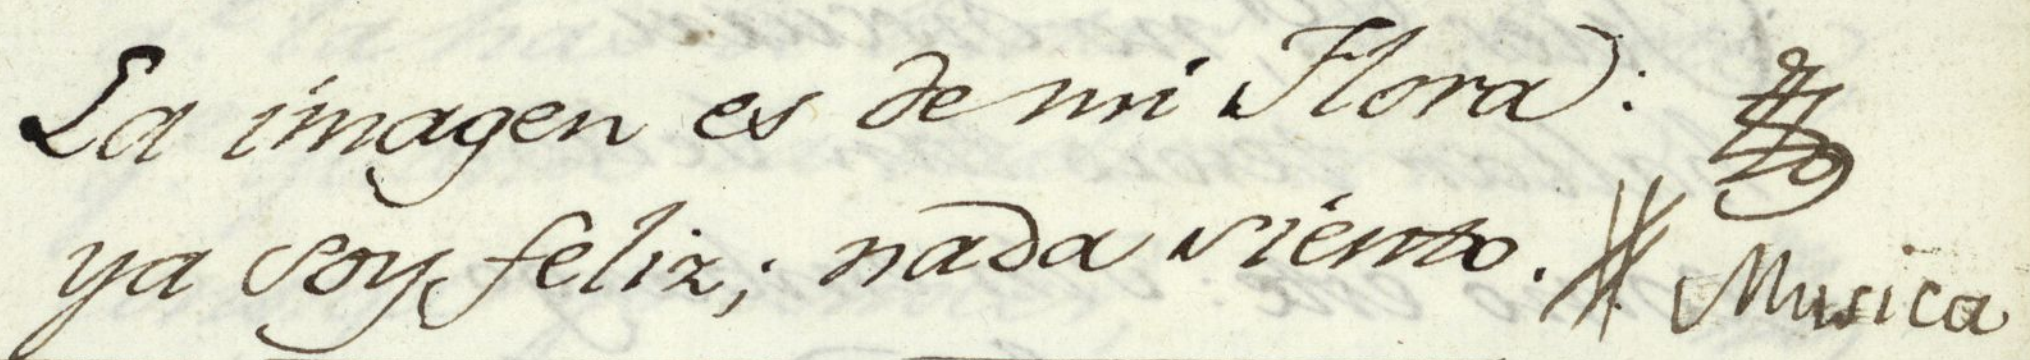 La imagen es de mi Flora:
ya soy feliz; nada siento. # Musica